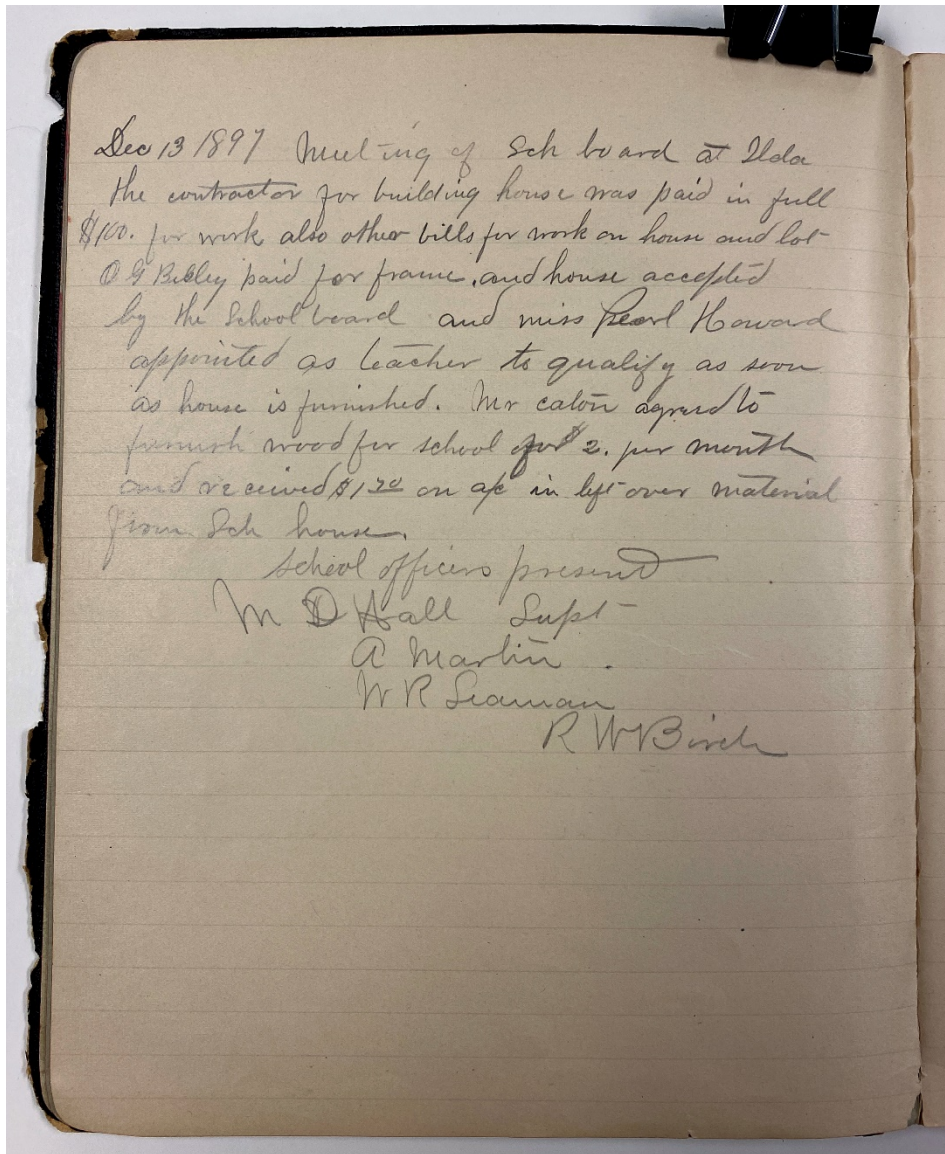 Dec 13 1897 Meeting of Sch board at Ilda
the contractor for building house was paid in full
$100. for work also other bills for work on house and lot
O G paid for frame, and house accepted
by the School board and miss Pearl Howard
appointed as teacher to qualify as soon
as house is furnished. Mr caton agreed to
furnish wood for school for $2. per month
and received $1 20 on a/c in left over material
from Sch house.
School officers present
M D Hall Supt
A Martin
W R Seaman
R W Birch